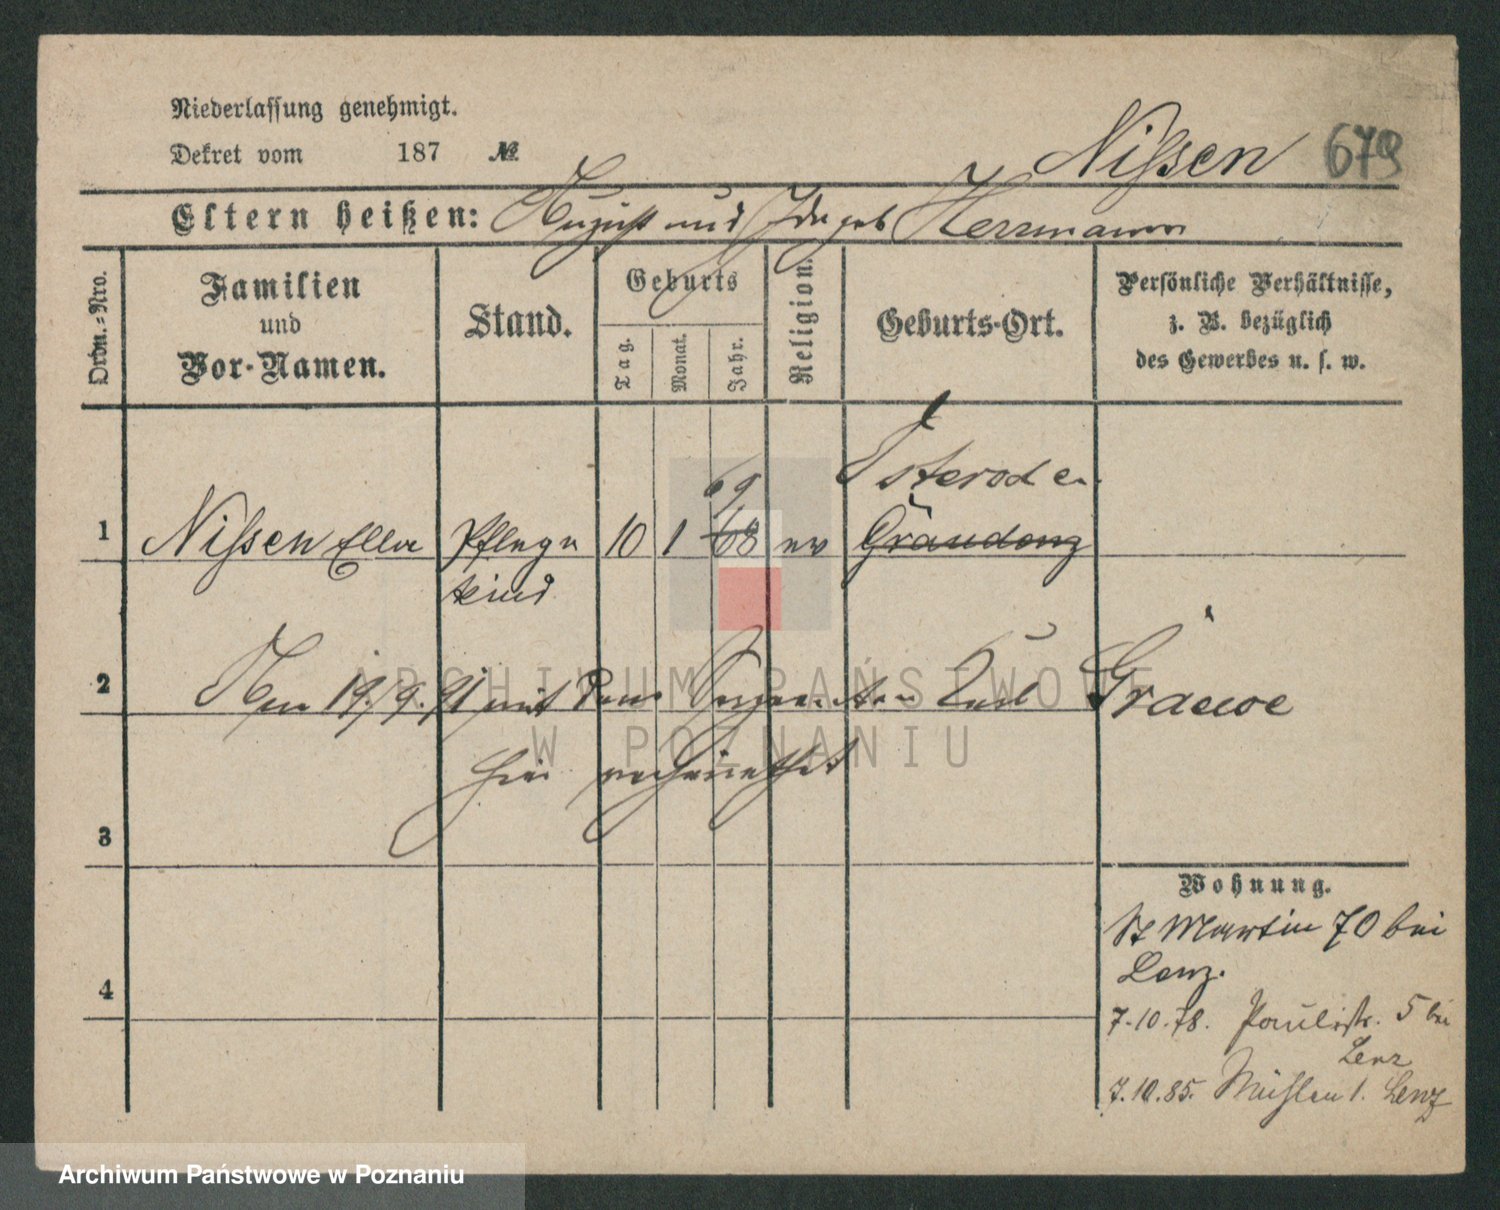 Niederlassung genehmigt.
Dekret vom 187 №
Nissen 679
Eltern heißen: August und Ida geb Herrmann
Ordn.-Nro.
Familien
und
Vor-Namen.
Stand.
Geburts
Tag.
Monat.
Jahr.
Religion.
Geburts-Ort.
Persönliche Verhältnisse,
z. B. bezüglich
des Gewerbes u. s. w.
69 Osterode
1 Nissen Ella Pflege 10 1 68 ev Graudenz
kind
2 Am 19./9.91 mit dem Sergeanten Karl Gräwe
hier verheirathet
3
Wohnung.
St Martin 70 bei
Lenz.
4
7.10.78. Paulistr. 5 bei
Lenz
7.10.85. Mühlen 1. Lenz
ARCHIWUM PAŃSTWOWE
W POZNANIU
Archiwum Państwowe w Poznaniu